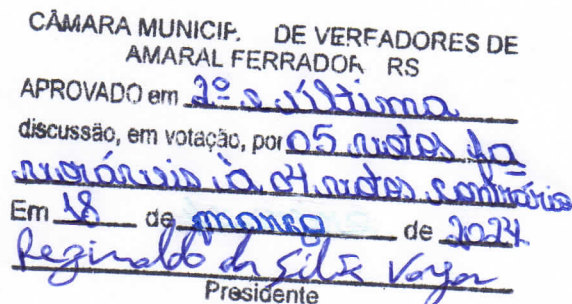 CÂMARA MUNICIP. DE VEREADORES DE
AMARAL FERRADOR RS
APROVADO em 2º e última
discussão, em votação, por 05 votos fa
voráveis à 04 votos contrários
Em 18 de março de 2024
Reginaldo da Silva
Presidente